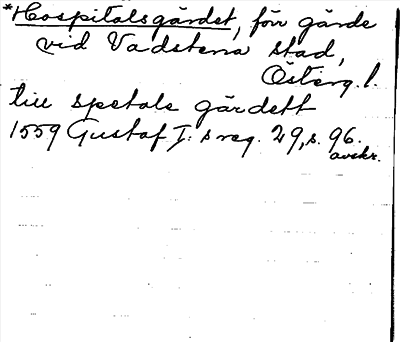 *Hospitalsgärdet, förr gärde
vid Vadstena stad,
Österg. l.
till spetals gärdett
1559 Gustaf I:s reg. 29, s. 96.
avskr.